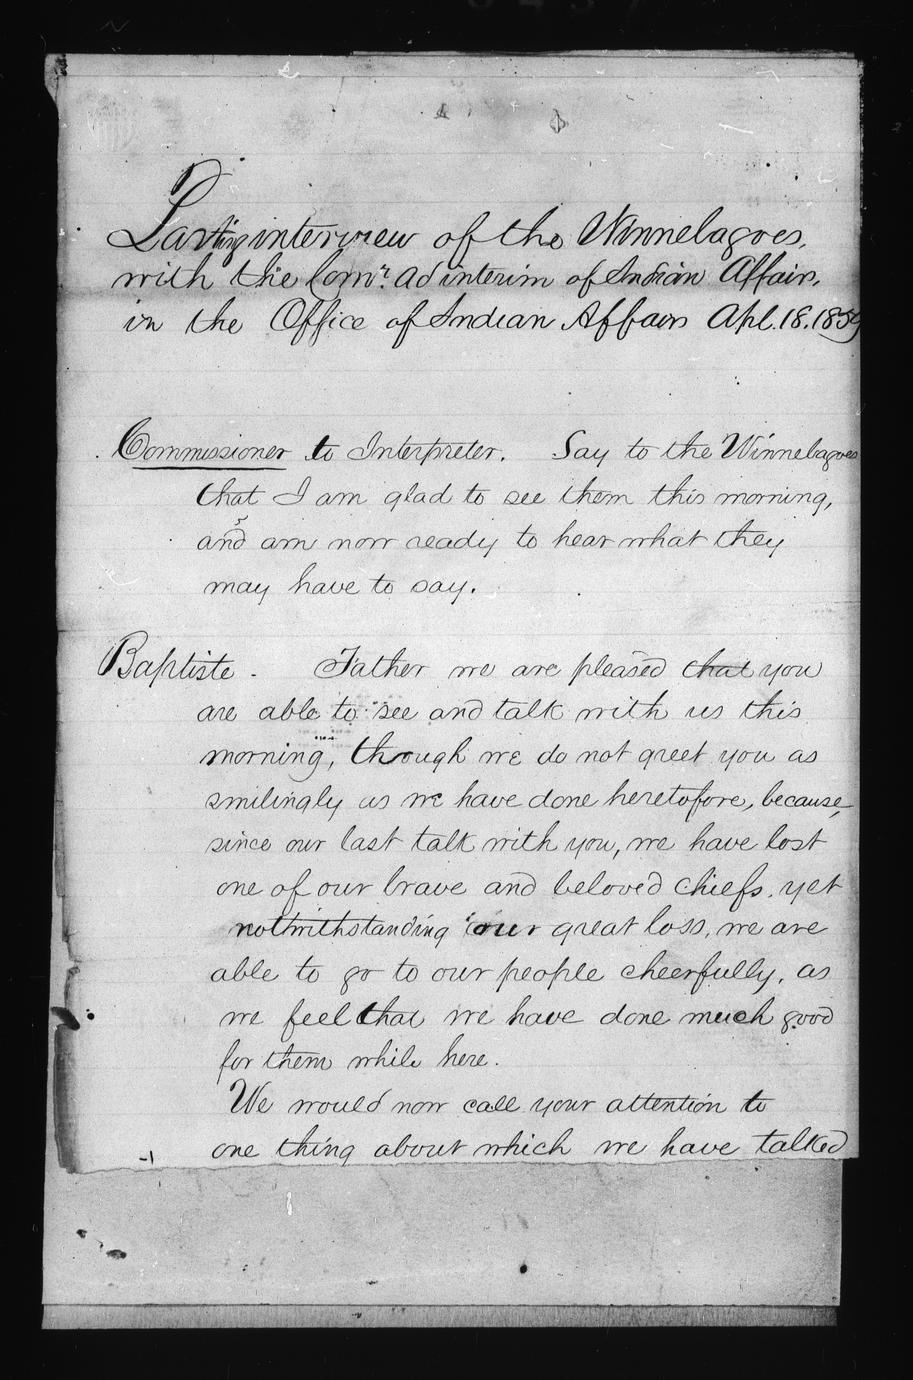 Parting interview of the Winnebagoes,
with the Comr. ad interim of Indian Affairs,
in the Office of Indian Affairs Apl. 18. 1859
Commissioner to Interpreter. Say to the Winnebagoes
that I am glad to see them this morning,
and am now ready to hear what they
may have to say.
Baptiste. Father we are pleased that you
are able to see and talk with us this
morning, though we do not greet you as
smilingly as we have done heretofore, because,
since our last talk with you, we have lost
one of our brave and beloved chiefs, yet
notwithstanding our great loss, we are
able to go to our people cheerfully, as
we feel that we have done much good
for them while here.
We would now call your attention to
one thing about which we have talked